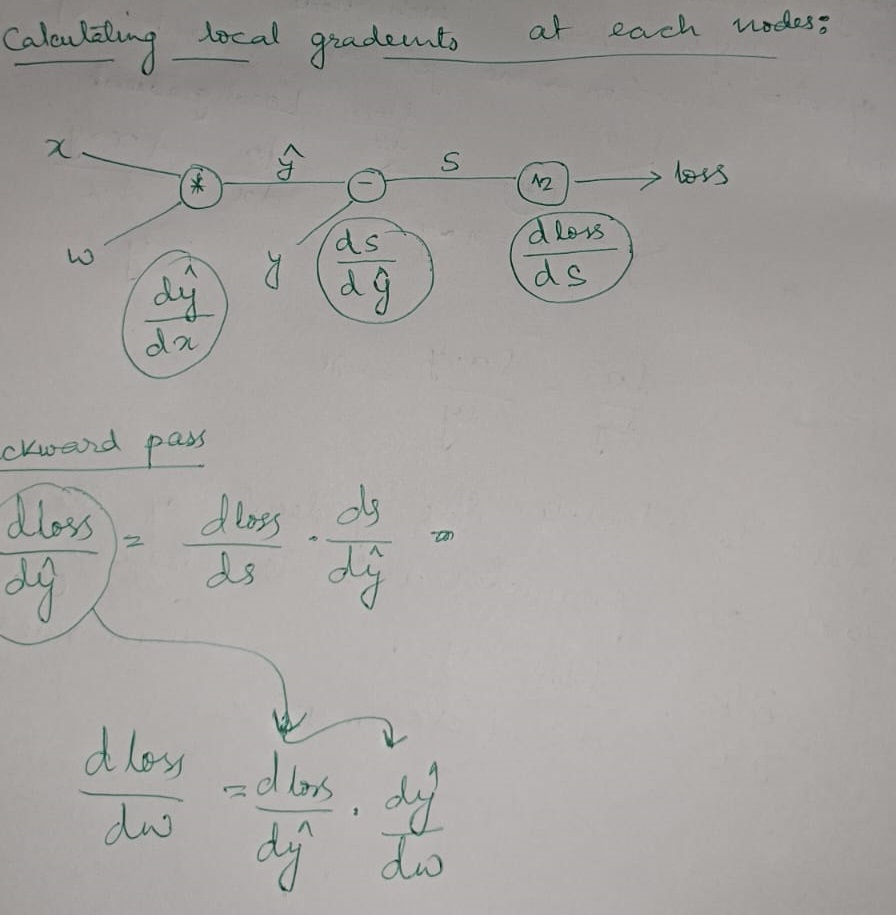 Calculating local gradeints at each nodes:
x
ŷ
S
* - ^2 loss
w
y
dŷ/dx
ds/dŷ
dloss/ds
ckward pass
dloss/dŷ = dloss/ds . ds/dŷ =
dloss/dw = dloss/dŷ . dŷ/dw